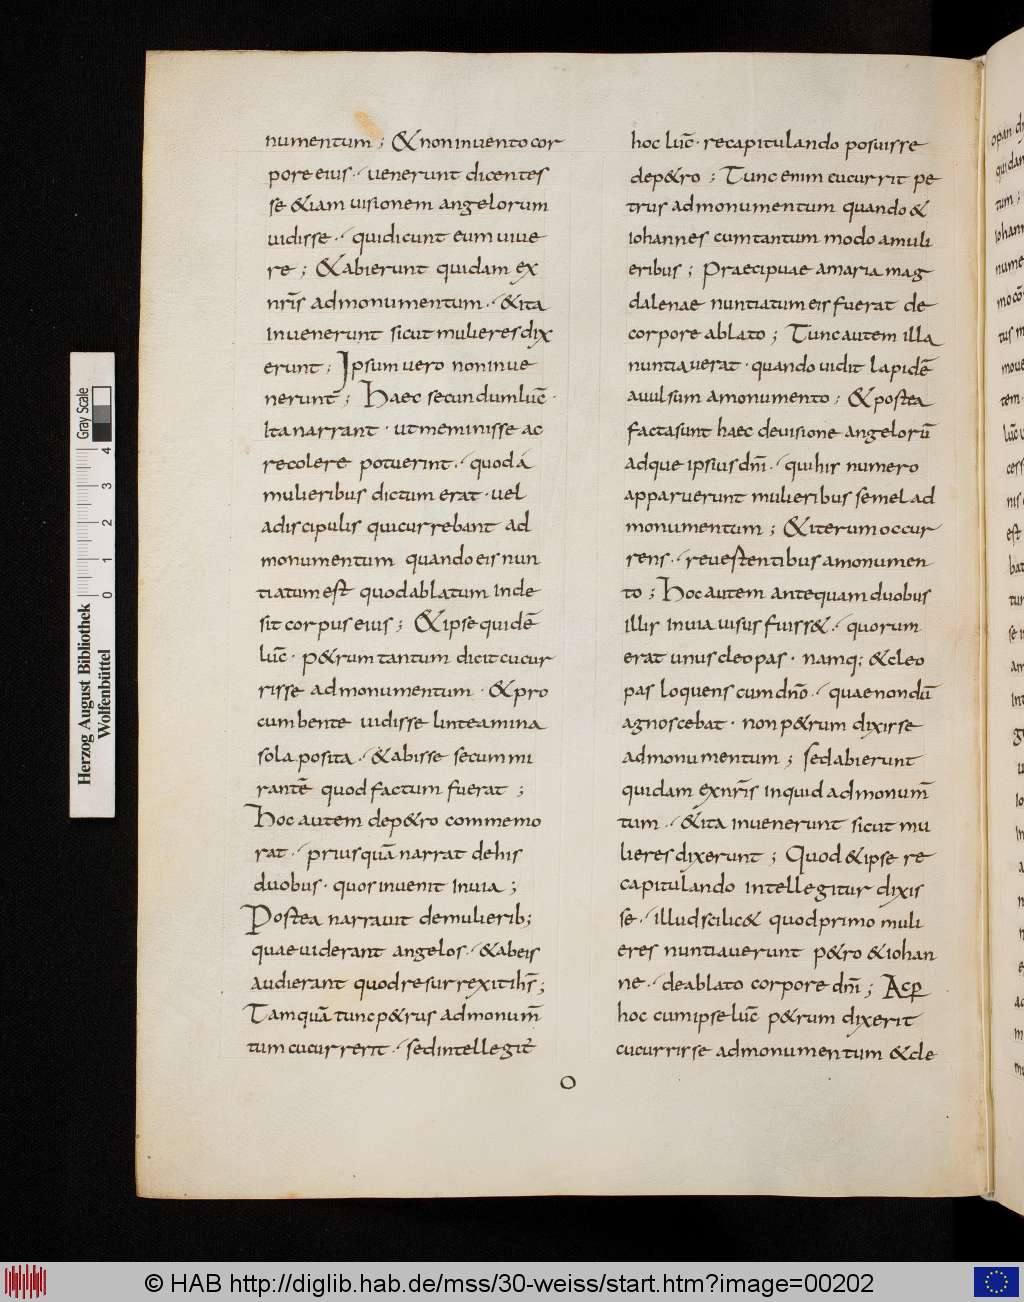 numentum ; & non inuento cor
pore eius ·/ uenerunt dicentes
se &iam uisionem angelorum
uidisse ·/ qui dicunt eum uiue
re ; & abierunt quidam ex
nr̄is ad monumentum ·/ & ita
inuenerunt sicut mulieres dix
erunt ; Ipsum uero non inue
nerunt ; Haec secundum luc̄ ·
Ita narrant · ut meminisse ac
recolere potuerint ·/ quod á
mulieribus dictum erat · uel
a discipulis qui currebant ad
monumentum quando eis nun
tiatum est quod ablatum inde
sit corpus eius ; & ipse quidē
luc̄ · p&rum tantum dicit cucur
risse ad monumentum · & pro
cumbente uidisse linteamina
sola posita ·/ & abisse secum mi
rantē quod factum fuerat ;
Hoc autem de p&ro commemo
rat ·/ prius quā narrat de his
duobus · quos inuenit in uia ;
Postea narrauit de mulierib;
quae uiderant angelos ·/ & ab eis
audierant quod resurrexit ih̄s ;
Tamquā tunc p&rus ad monum̄
tum cucurrerit ·/ sed intellegit̄
hoc luc̄ · recapitulando posuisse
de p&ro ; Tunc enim cucurrit pe
trus ad monumentum quando &
iohannes cum tantum modo a muli
eribus ; Praecipuae a maria mag
dalenae nuntiatum eis fuerat de
corpore ablato ; Tunc autem illa
nuntiauerat · quando uidit lapidē
auulsum a monumento ; & postea
facta sunt haec de uisione angelorū
adque ipsius dn̄i ·/ qui his numero
apparuerunt mulieribus semel ad
monumentum ; & iterum occur
rens ·/ reuestentibus a monumen
to ; Hoc autem ante quam duobus
illis in uia uisus fuiss& ·/ quorum
erat unus cleopas · namq; & cleo
pas loquens cum dn̄o ·/ quae nondū
agnoscebat · non p&rum dixisse
ad monumentum ; sed abierunt
quidam ex nr̄is inquid ad monum̄
tum ·/ & ita inuenerunt sicut mu
lieres dixerunt ; Quod & ipse re
capitulando intellegitur dixis
se ·/ illud scilic& quod primo muli
eres nuntiauerunt p&ro & iohan
ne ·/ de ablato corpore dn̄i ; Ac ꝑ
hoc cum ipse luc̄ p&rum dixerit
cucurrisse ad monumentum & cle
O
Herzog August Bibliothek
Wolfenbüttel
0 1 2 3 4
Gray Scale
© HAB http://diglib.hab.de/mss/30-weiss/start.htm?image=00202